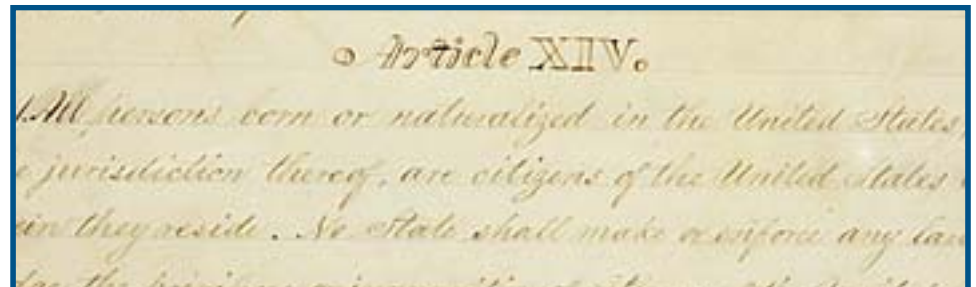 Article XIV.
1. All persons born or naturalized in the United States,
e jurisdiction thereof, are citizens of the United States
ein they reside. No State shall make or enforce any law
dge the